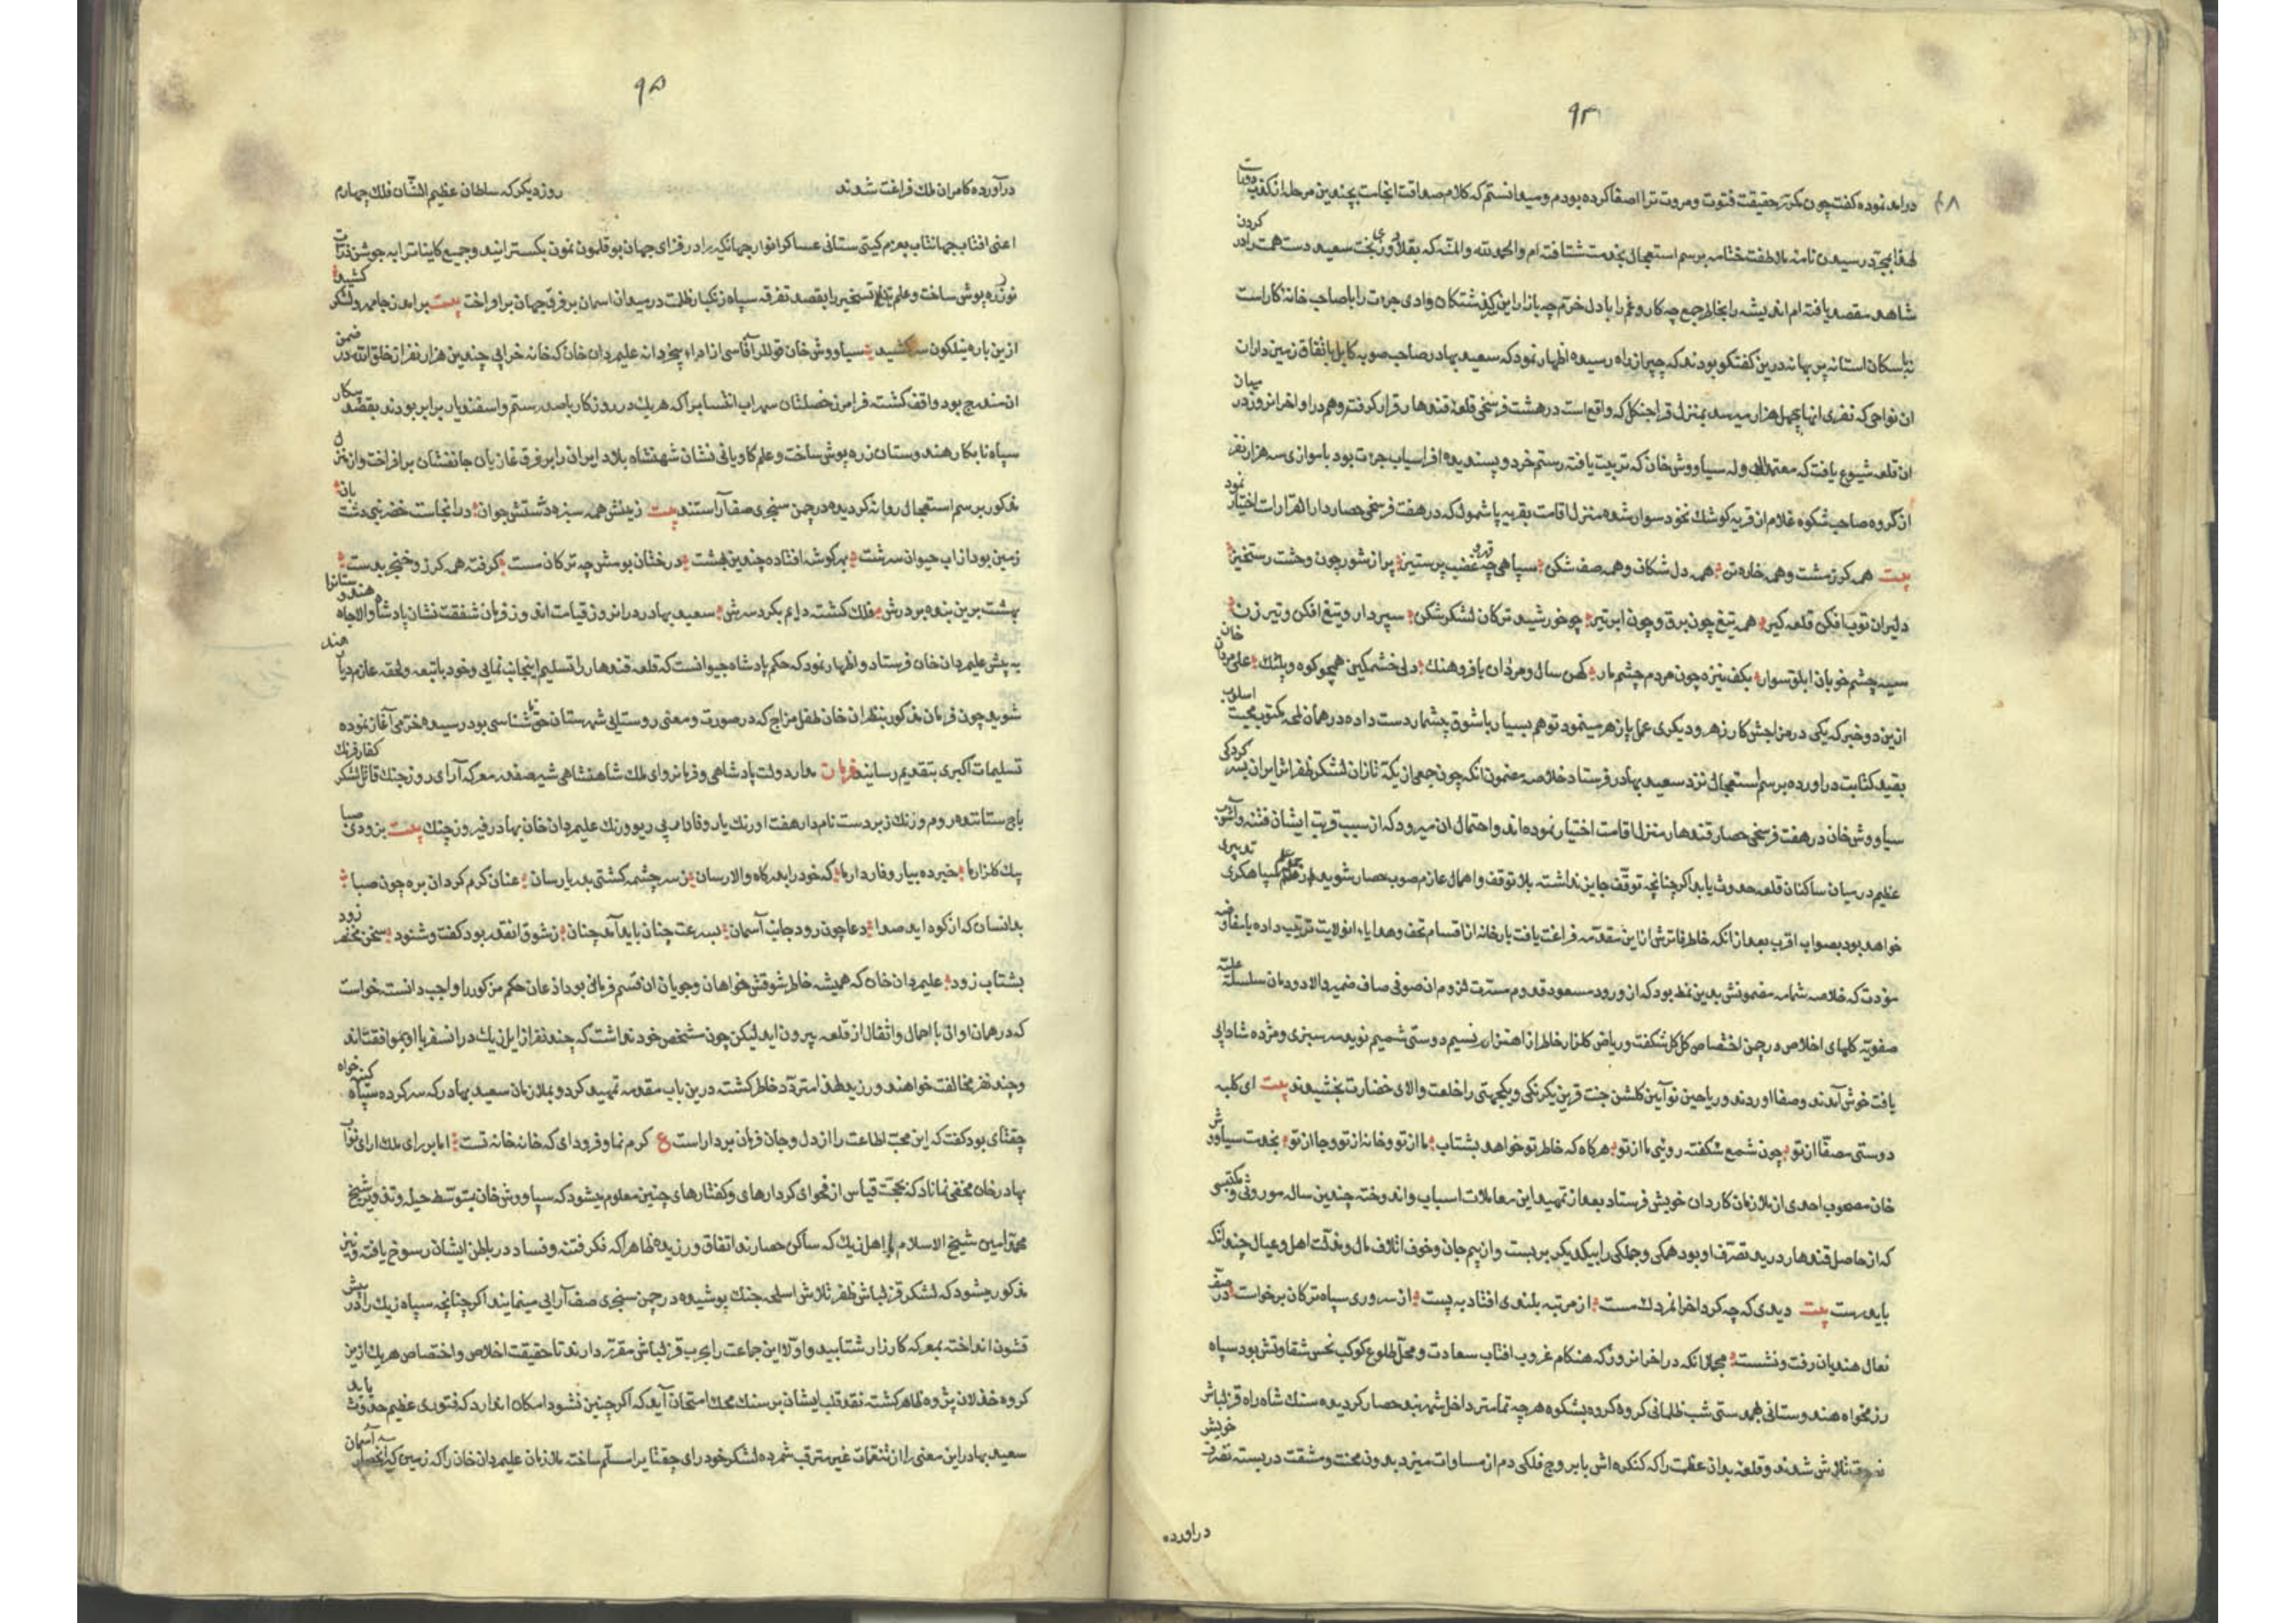 ۹۴
درآمد نموده گفت چون مکرّر حقیقت فتوت و مروت ترا اصغا کرده بودم و میدانستم که کلام صداقت انجامت بچندین مرحله از کذب
لهذا بمجرّد رسیدن نامهٔ ملاطفت ختامه برسم استعجال بخدمت شتافته ام والحمدلله والمنّه که بقلاوزی بخت سعید دست همت را در کردن
شاهد مقصد یافته ام اندیشه را بخاطر جمع چه کار و غم را با دل خرّم چه بازار این کم گشتکان وادی جرءت را با صاحب خانه کار است
نه با سکان استانه پس بهانه درین کفتکو بودند که چپر از راه رسیده اظهار نمود که سعید بهادر صاحب صوبه کابل باتفاق زمین داران
ان نواحی که نفری انها بچهل هزار میرسد بمنزل قراجنکل که واقع است در هشت فرسخی قلعهٔ قندهار قرار کرفته و هم در اواخر انروز در میان
ان قلعه شیوع یافت که معتمد الدوله سیاووش خان که تربیت یافته رستم خرد و پسندیده افراسیاب جرءت بود با موازی سه هزار نفر
از کروه صاحب شکوه غلام از قریه کوشک نخود سوار شده منزل اقامت بقریه پاشمول که در هفت فرسخی حصار دار القرار است اختیار نمود
بیت همه کرز مشت و همه خاره تن همه دل شکان و همه صف شکن سپاهی چه غضب پرستیز پر از شور چون وحشت رستخیز
دلیران توپ افکن قلعه کیر همه تیغ چون برق و چون ابر تیر چو خورشید ترکان لشکر شکن سپردار و تیغ افکن و تیر زن
سیه چشم خوبان ابلق سوار بکف نیزه چون مردم چشم مار کهن سال و مردان با فر و هنک دلی خشمکین همچو کوه و پلنک علی مردان خان
ازین دو خبر که یکی در مزاجش کار زهر و دیکری عمل پازهر مینمود توهم بسیار با شوق بیشمار دست داده در همان لمحه مکتوب محبت اسلوب
بقید کتابت در اورده برسم استعجال نزد سعید بهادر فرستاد خلاصه مضمون انکه چون جمعی از یکه تازان لشکر ظفر اثر ایران بسر کردکی
سیاووش خان در هفت فرسخی حصار قندهار منزل اقامت اختیار نموده اند و احتمال ان میرود که از سبب قربت ایشان فتنه و آشوب
عظیم در میان ساکنان قلعه حدوث یابد اکر چنانچه توقف جایز نداشته بلا توقف و اهمال عازم صوب حصار شوید از علم سپاهکری تدبیری
خواهد بود بصواب اقرب بعد از انکه خاطر فاترش از این مقدمه فراغت یافت بارخانه از اقسام تحف و هدایاء انولایت ترتیب داده با مفاوضه
مودت که خلاصه شمامه مضمونش بدین نمط بود که از ورود مسعود قدوم مسرت لزوم ان صوفی صاف ضمیر والا دودمان سلسله علیّه
صفویه کلهای اخلاص در چمن اختصاص کل کل شکفت و ریاض کلزار خاطر از اهتزاز نسیم دوستی شمیم نوید سرسبزی و مژده شادابی
یافت خوش آمدند و صفا اوردند و ریاحین نوآیین کلشن جنت قرین یکرنکی و یکجهتی را خلعت والای خضارت بخشیدند بیت ای کلبه
دوستی مصفّا از تو چون شمع شکفته روئی ما از تو هرکاه که خاطر تو خواهد بشتاب ما از تو و خانه از تو و جا از تو بخدمت سیاووش
خان مصحوب احدی از ملازمان کاردان خویش فرستاد بعد از تمهید این معاملات اسباب و اندوخته چندین ساله موروثی و مکتسبی
که از حاصل قندهار در ید تصرّف او بود همکی و جملکی را بیکدیکر بر بست و از بیم جان و خوف اتلاف مال و مذلت اهل و عیال چندانکه
باید رست بیت دیدی که چه کرد اخر انمردک مست از مرتبه بلندی افتاد به پست از سروری سپاه ترکان برخواست در صف
نعال هندیان رفت و نشست مجملا انکه در اخر انروز که هنکام غروب افتاب سعادت و محل طلوع کوکب نحس شقاوتش بود سپاه
رزمخواه هندوستانی بهمدستی شب ظلمانی کروه کروه بشکوه هرچه تمامتر داخل شهر بند حصار کردیده سنک شاه راه قزلباش
تلاش شدند و قلعهٔ بدان عظمت را که کنکره اش با بروج فلکی دم از مساوات میزد بدون محنت و مشقت در بسته بتصرف خویش
دراورده
۹۵
درآورده کامران ملک فراغت شدند روز دیکر که سلطان عظیم الشّان فلک چهارم
اعنی افتاب جهانتاب بعزم کیتی ستانی عساکر انوار جهانکیر را در فضای جهان بوقلمون نمون بکسترانید و جمیع کاینات را به جوشن ذرات
نور زره پوش ساخت و علم تسخیر را بقصد تفرقه سپاه زنکبار ظلمت در میدان اسمان بر فرق جهان برافراخت بیت برامد ز جا مهر و لشکر کشید
ازین باره نیلکون سر کشید سیاووش خان قوللر آقاسی از اراده بیخردانه علیمردان خان که خانه خرابی چندین هزار نفر از خلق الله در ضمن
ان مندرج بود واقف کشته فرامرز خصلتان سهراب انتساب را که هریک در روز کار با صد رستم و اسفندیار برابر بودند بقصد پیکار
سپاه نابکار هندوستان زره پوش ساخت و علم کاویانی نشان شهنشاه بلاد ایران را بر فرق غازیان جانفشان برافراخت و از منزل
مذکور برسم استعجال روانه کردیده در چمن سنجری صف آراستند بیت زمینش همه سبزه دشتش جوان در انجاست خضر نبی دشت بان
زمین بود از اب حیوان سرشت بهر کوشه افتاده چندین بهشت درختان بومش چه ترکان مست کرفته همه کرز و خنجر بدست
بهشت برین بنده بر درش فلک کشته دایم بکرد سرش سعید بهادر در انروز قیامت اندوز فرمان شفقت نشان پادشاه والاجاه هندوستانرا
به پیش علیمردان خان فرستاد و اظهار نمود که حکم پادشاه جیو انست که قلعه قندهار را تسلیم اینجانب نمایی و خود با تبعه و لحقه عازم دیار هند
شوید چون فرمان مذکور بنظر ان خان طفل مزاج که در صورت و معنی روستایی شهرستان حق ناشناسی بود رسید خرّمی آغاز نموده
تسلیمات اکبری بتقدیم رسانید فرمان مدار دولت پادشاهی و فرمانروای ملک شاهنشاهی شیر صفدر معرکه آرای روز جنک قاتل لشکر کفار فرنک
باج ستاننده روم و زنک زبردست نامدار هفت اورنک یار وفادار بی ریو و رنک علیمردان خان بهادر فیروز جنک بیت بزودی صبا
پیک کلزار ما خبر ده بیار وفادار ما که خود را بدرکاه والا رسان ز سرچشمه کشتی بدریا رسان عنان کرم کردان بره چون صبا
بدانسان که از کوه اید صدا دعا چون رود جانب آسمان بسرعت چنان باید آمد چنان ز شوق انقدر بود کفت و شنود سخن مختصر زود
بشتاب زود علیمردان خان که همیشه خاطر شوقش خواهان و جویان ان قسم فرمانی بود اذعان حکم مزکور را واجب دانسته خواست
که در همان اوان با احمال و اثقال از قلعه بیرون اید لیکن چون مشخص خود نداشت که چند نفر از ایل زیک در انسفر با او موافقت اند
و چند نفر مخالفت خواهند ورزید طفل استردّد خاطر کشته درین باب مقدمه تمهید کرد و بملازمان سعید بهادر که سر کرده سپاه کینه خواه
چقتای بود کفت که این محبّ اطاعت را از دل و جان فرمان بردار است ع کرم نما و فرود ای که خانه خانه تست اما بر رای ملک ارای نوّاب
بهادر خان مخفی نماناد که بحجّت قیاس از فحوای کردارهای و کفتارهای چنین معلوم میشود که سیاووش خان بتوسّط حیله و تزویر شیخ
محمد امین شیخ الاسلام با اهل زیک که ساکن حصارند اتفاق ورزیده ظاهرا که فکر فتنه و فساد در باطن ایشان رسوخ یافته و نیز
مذکور میشود که لشکر قزلباش ظفر تلاش اسلحه جنک پوشیده در چمن سنجری صف آرایی مینمایند اکر چنانچه سپاه زیک را در پیش
قشون انداخته بمعرکه کارزار شتابید و اولا این جماعت را بحرب قزلباش مقرّر دارند تا حقیقت اخلاص و اختصاص هریک ازین
کروه خذلان پژوه ظاهر کشته نقد قلب ایشان بر سنک محک امتحان آید که اکر چنین نشود امکان اندارد که فتوری عظیم حدوث یابد
سعید بهادر این معنی را از تنعّمات غیر مترقب شمرده لشکر خود رای چقتایرا مسلّم ساخته ملازمان علیمردان خان را که زمین